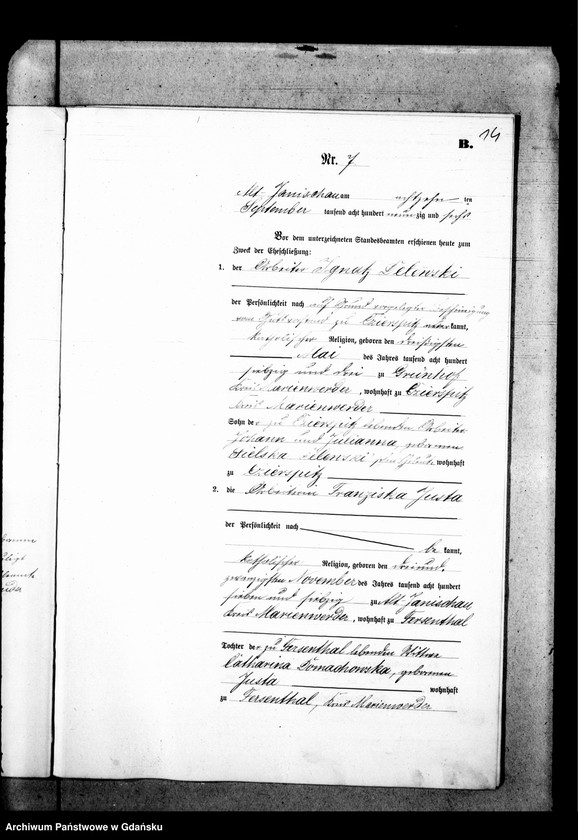 B. 14
Nr. 7
Alt Janischau am achtzehn ten
September tausend acht hundert neun zig und sechs
Vor dem unterzeichneten Standesbeamten erschienen heute zum
Zweck der Eheschließung:
1. der Arbeiter Ignatz Zelewski
der Persönlichkeit nach auf Grund vorgelegter Bescheinigung
vom Gutsvorstand zu Czierspitz aner kannt,
katholischer Religion, geboren den dreißigsten
Mai des Jahres tausend acht hundert
siebzig und drei zu Grünhof
Kreis Marienwerder, wohnhaft zu Czierspitz
Kreis Marienwerder
Sohn der zu Czierspitz lebenden Arbeiter
Johann und Julianna, geborenen
Zelewski wohnhaft
zu Czierspitz
2. die Arbeiterin Franziska Justa
der Persönlichkeit nach
be kannt,
katholischer Religion, geboren den dreiund
zwanzigsten November des Jahres tausend acht hundert
sieben und siebzig zu Alt Janischau
Kreis Marienwerder, wohnhaft zu Fersenthal
Tochter der zu Fersenthal lebenden Wittwe
Catharina Domachowska, geborenen
Justa wohnhaft
zu Fersenthal, Kreis Marienwerder
Archiwum Państwowe w Gdańsku